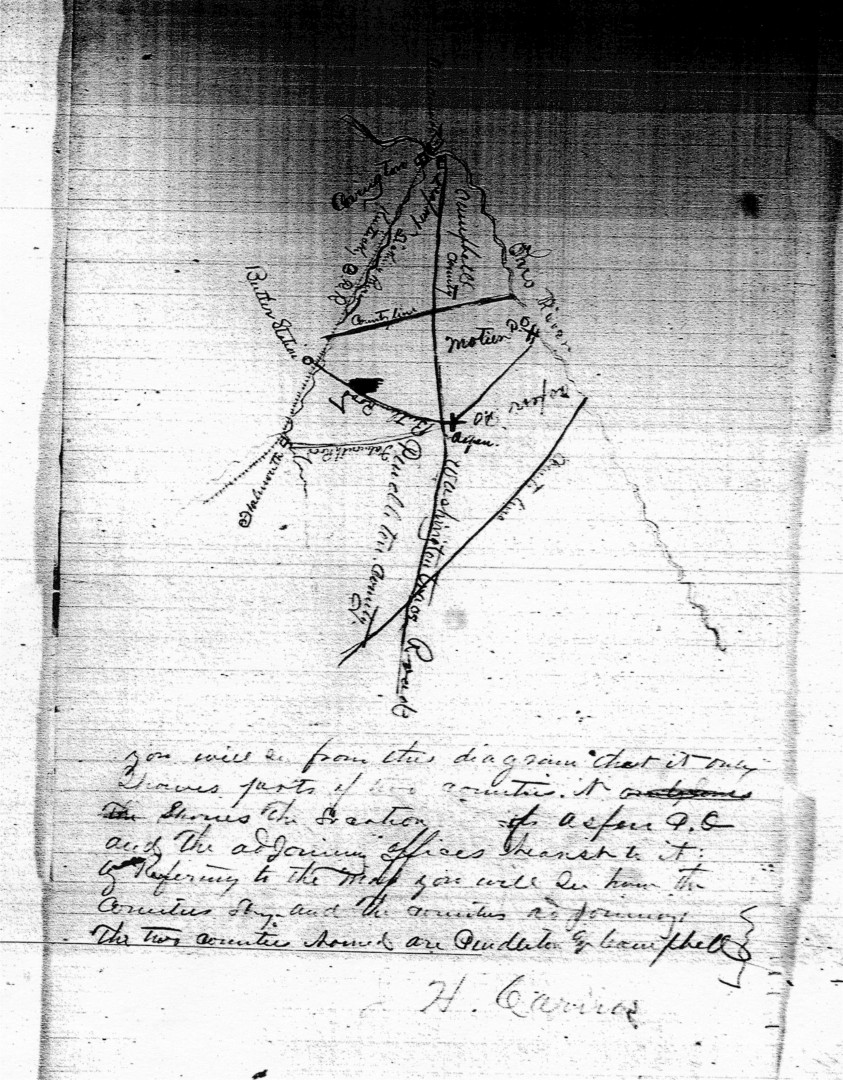 Covington
Newport
Campbells
County
Kentucky C. R. R.
Licking River
Ohio River
Butler Station
County line
Motier P.O
Butler
Road
Aspen P.O
Aspen.
Falmouth Road
Falmouth
Pendleton County
Ky.
Washington
Road
County Line
you will see from this diagram that it only
Shows parts of two counties. It
The Shows the Location of Aspen P.O
and the adjoining offices nearest to it:
By Refering to the Map you will see how the
Counties lay and the counties adjoining
The two counties named are Penderton & Campbell
Ky
H.